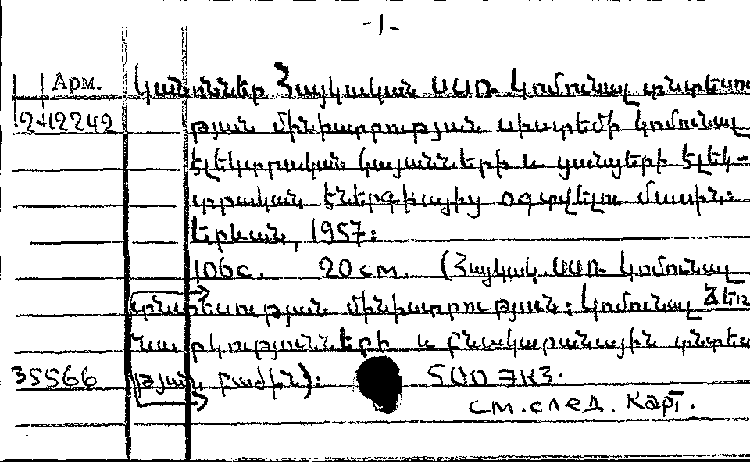 -1-
Арм. Կանոններ Հայկական ՍՍՌ Կոմունալ տնտեսու
2-12242 թյան մինիստրության սիստեմի կոմունալ
էլեկտրական կայանների և ցանցերի էլեկ-
տրական էներգիայից օգտվելու մասին։
Երևան, 1957։
10bс. 20 см. (Հայկակ. ՍՍՌ Կոմունալ
տնտեսության մինիստրություն։ Կոմունալ ձեռ
նարկությունների և բնակարանային տնտես
35566 թյան բաժին)։ 500 экз.
см. след. карт.